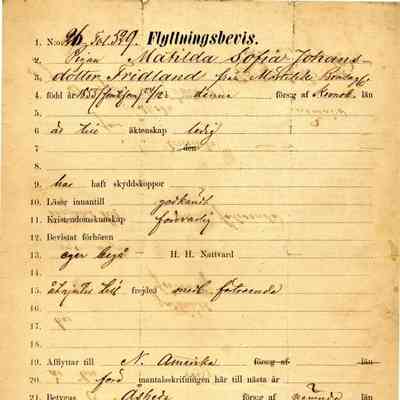 1. N:o 26, Fol. 329. Flyttningsbevis.
2. Pigan Matilda Sofia Johans-
3. dotter Fridland från
4. född år 1855 denna förs:g af Kronob. län
5.
6. är till äktenskap ledig
7. den
8.
9. har haft skyddskoppor
10. Läser innantill godkändt
11. Kristendomskunskap försvarlig
12. Bevistat förhören
13. eger begå H. H. Nattvard
14.
15. åtnjuter till frejden medb. förtroende
16.
17.
18.
19. Afflyttar till N. Amerika förs:g af län
20. mantalsskrifningen här till nästa år
21. Betygas Åsheda förs:g af län